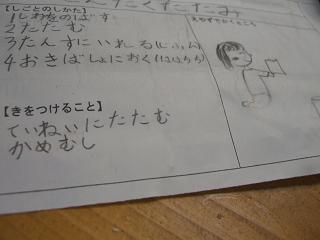 せんたくたたみ
【しごとのしかた】
1しわをのばす
2たたむ
3たんすにいれる(じぶん)
4おきばしょにおく(ははちち)
【きをつけること】
ていねいにたたむ
かめむし